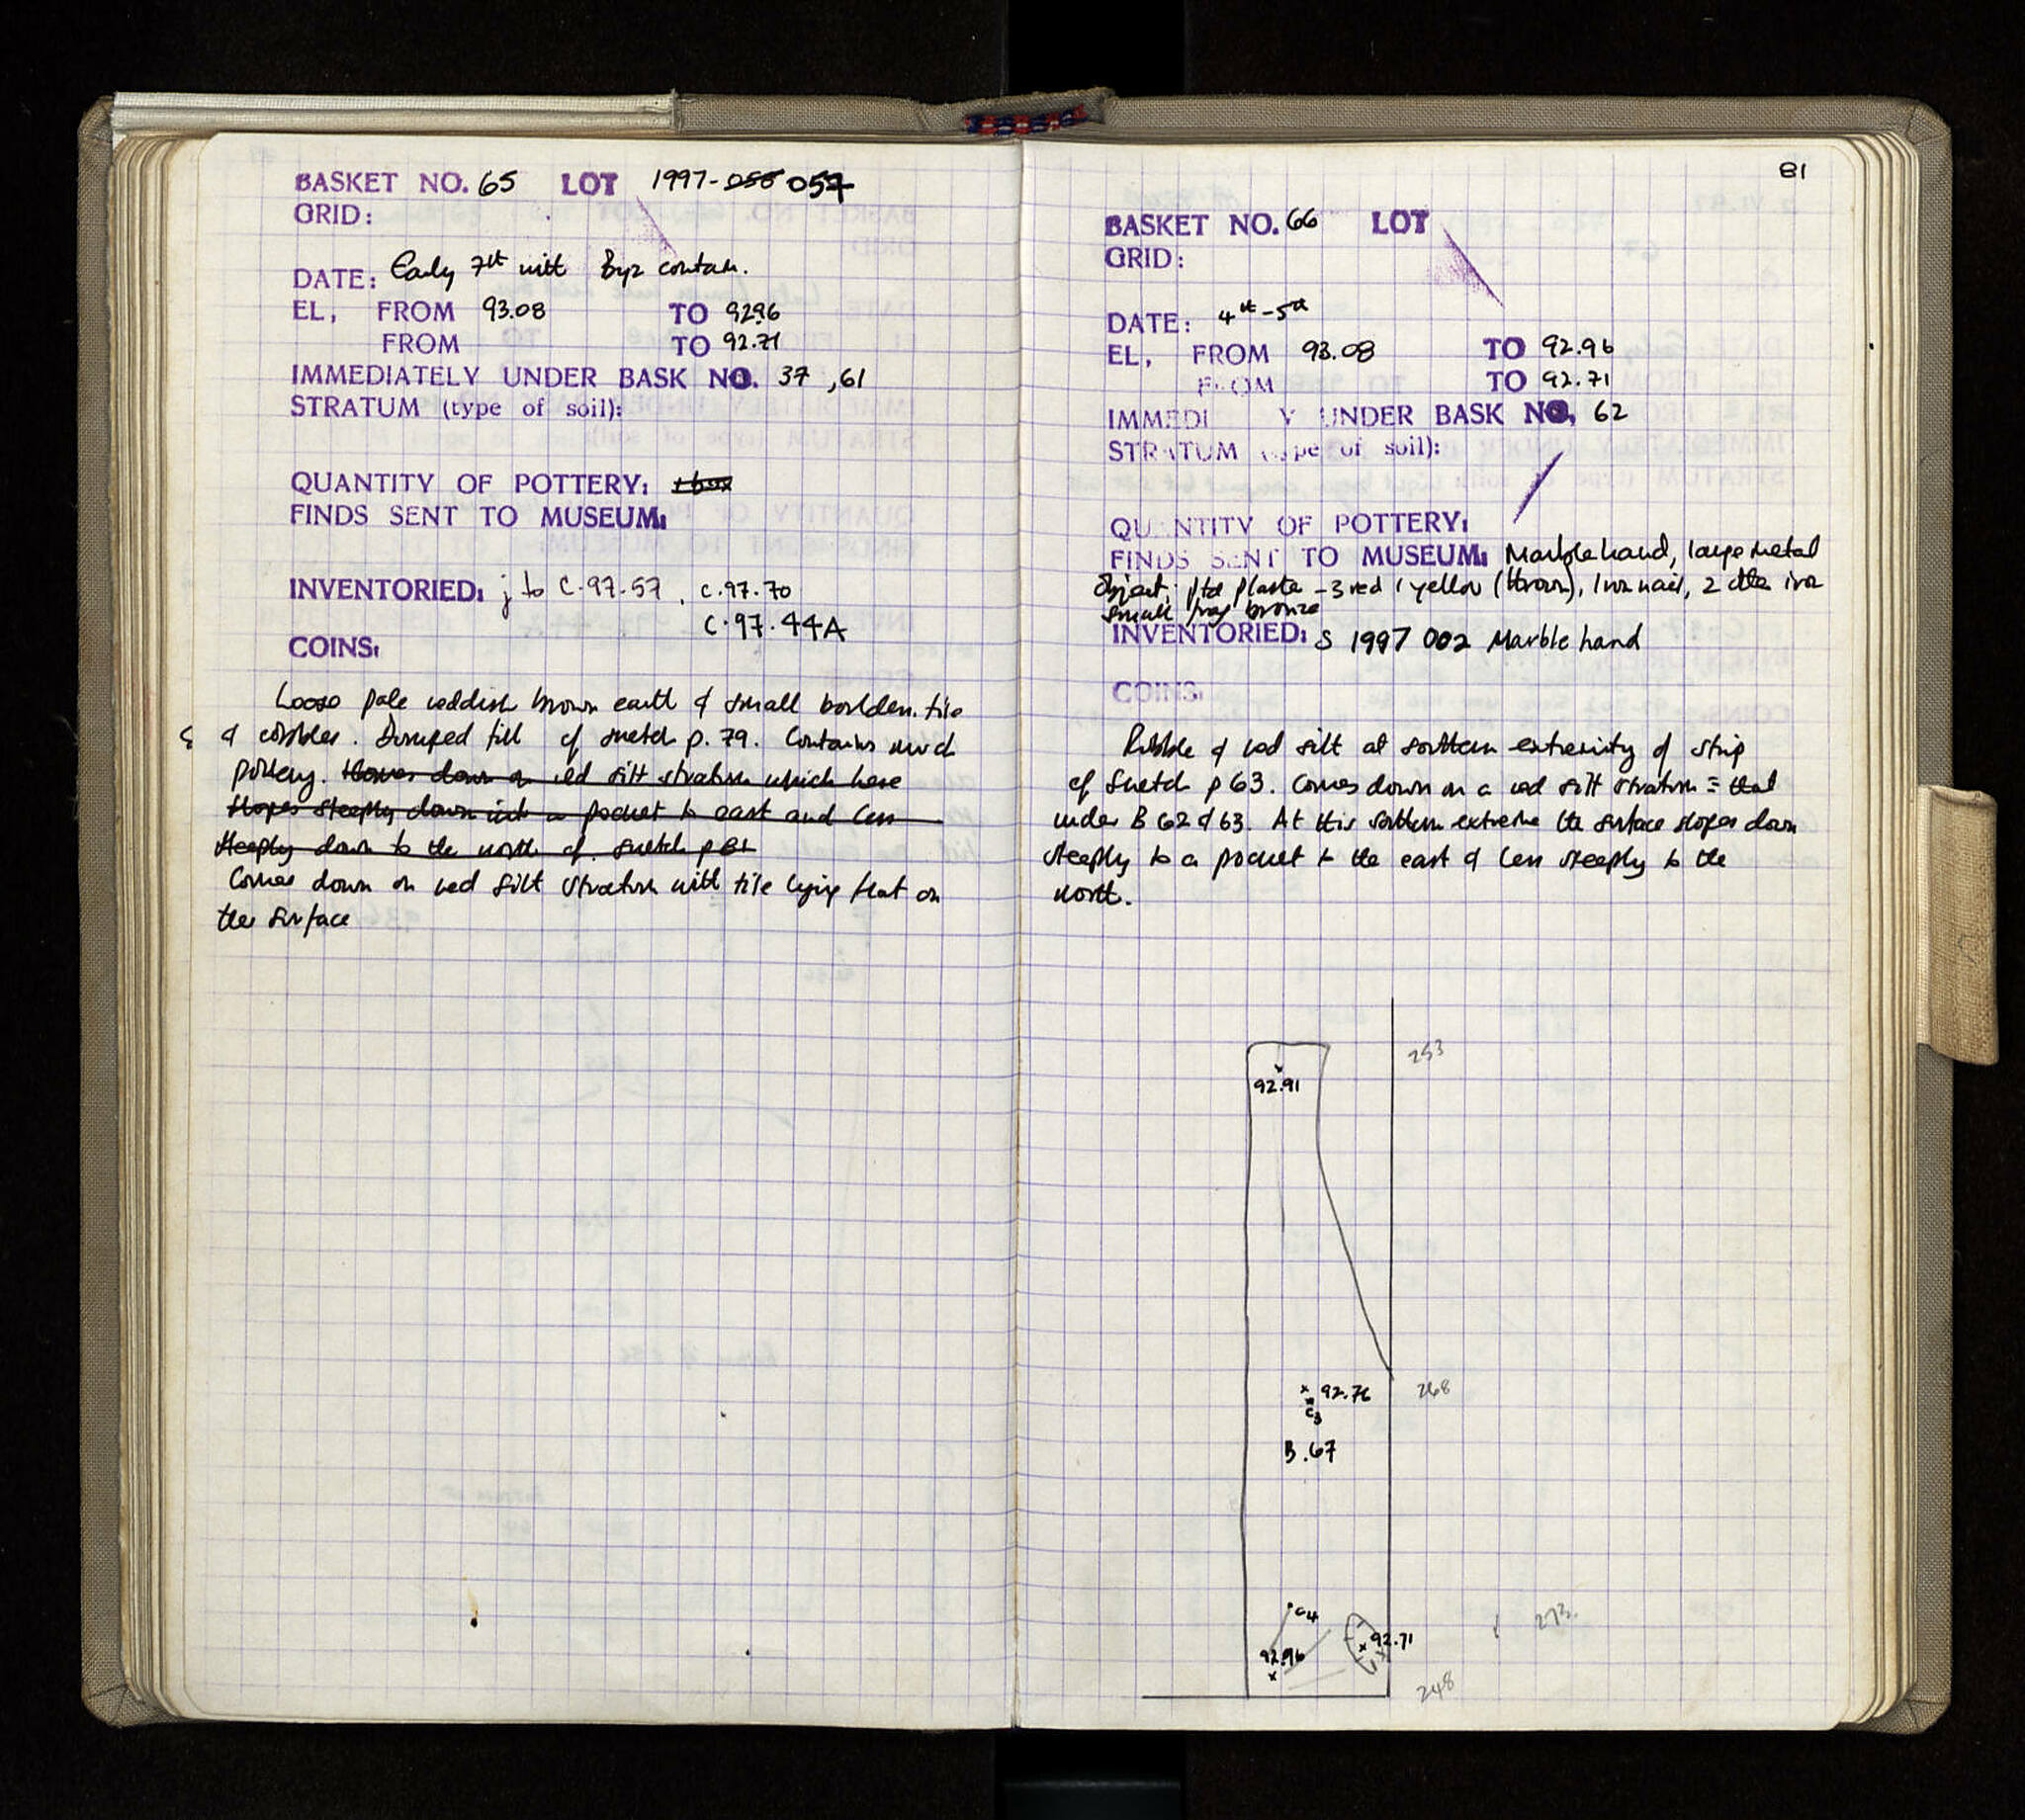 BASKET NO. 65 LOT 1997-056 057
GRID:
DATE: Early 7th with Byz contam.
EL, FROM 93.08 TO 92.96
FROM TO 92.71
IMMEDIATELY UNDER BASK NO. 37, 61
STRATUM (type of soil):
QUANTITY OF POTTERY: 1 box
FINDS SENT TO MUSEUM:
INVENTORIED: j to C.97.57, C.97.70
C.97.44A
COINS:
Loose pale reddish brown earth & small boulders. tile
& cobbles. Dumped fill cf sketch p. 79. Contains much
pottery. Comes down on red silt stratum which here
slopes steeply down into a pocket to east and less
steeply down to the north cf. sketch p 81
Comes down on red silt stratum with tile lying flat on
the surface
81
BASKET NO. 66 LOT
GRID:
DATE: 4th-5th
EL, FROM 93.08 TO 92.96
FROM TO 92.71
IMMEDI Y UNDER BASK NO, 62
STRATUM (type of soil):
QUANTITY OF POTTERY: /
FINDS SENT TO MUSEUM: Marble hand, large metal
object, ptd plaster - 3 red 1 yellow (thrown), Iron nail, 2 iron
small frag bronze
INVENTORIED: S 1997 002 Marble hand
COINS:
Rubble & red silt at southern extremity of strip
cf sketch p 63. Comes down on a red silt stratum = that
under B 62 & 63. At this southern extreme the surface slopes down
steeply to a pocket to the east & less steeply to the
north.
253
92.91
92.76
268
C3
B.67
C4
273
92.71
92.96
248